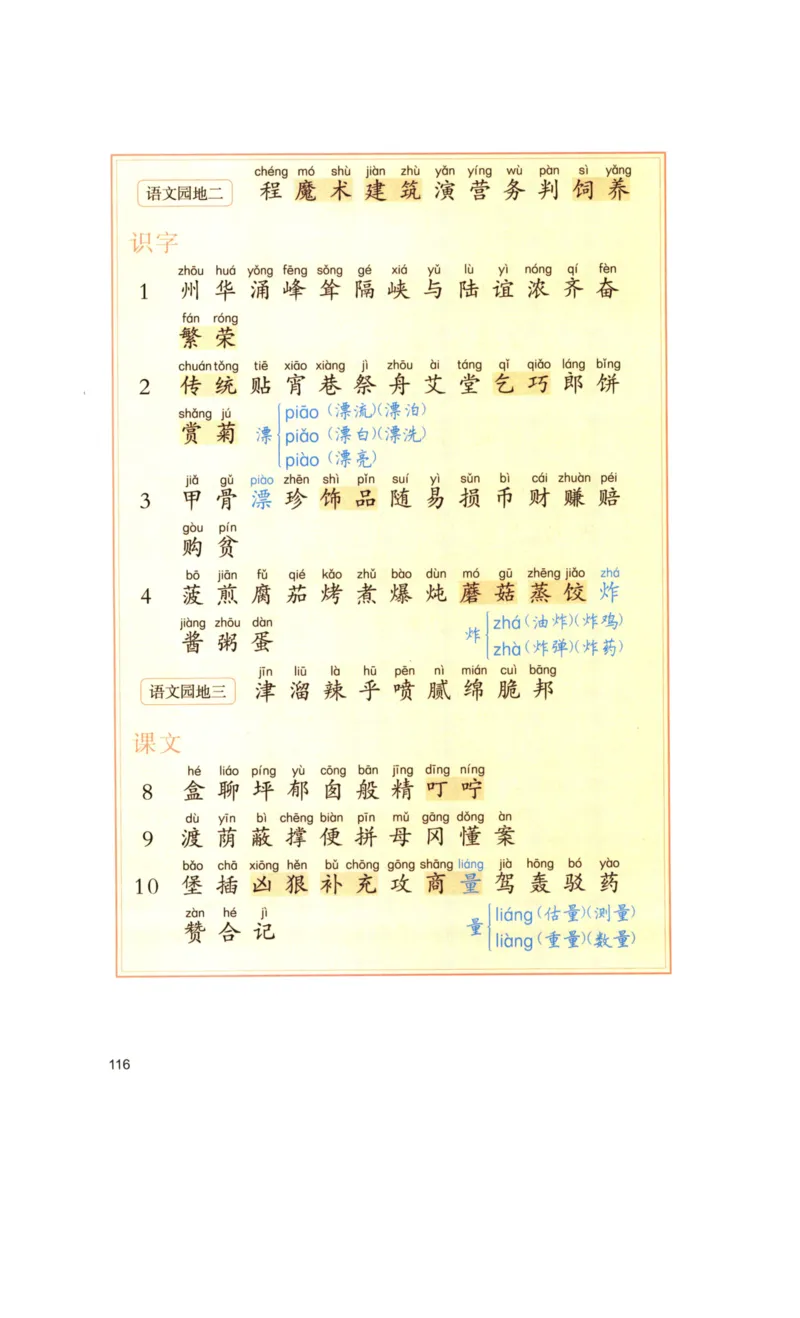 chéng mó shù jiàn zhù yǎn yíng wù pàn sì yǎng
语文园地二 程 魔 术 建 筑 演 营 务 判 饲 养
识字
zhōu huá yǒng fēng sǒng gé xiá yǔ lù yì nóng qí fèn
1 州 华 涌 峰 耸 隔 峡 与 陆 谊 浓 齐 奋
fán róng
繁 荣
chuán tǒng tiē xiāo xiàng jì zhōu ài táng qǐ qiǎo láng bǐng
2 传 统 贴 宵 巷 祭 舟 艾 堂 乞 巧 郎 饼
shǎng jú
赏 菊
漂 piāo（漂流）（漂泊）
piǎo（漂白）（漂洗）
piào（漂亮）
jiǎ gǔ piào zhēn shì pǐn suí yì sǔn bì cái zhuàn péi
3 甲 骨 漂 珍 饰 品 随 易 损 币 财 赚 赔
gòu pín
购 贫
bō jiān fǔ qié kǎo zhǔ bào dùn mó gū zhēng jiǎo zhá
4 菠 煎 腐 茄 烤 煮 爆 炖 蘑 菇 蒸 饺 炸
jiàng zhōu dàn
酱 粥 蛋
炸 zhá（油炸）（炸鸡）
zhà（炸弹）（炸药）
jīn liū là hū pēn nì mián cuì bāng
语文园地三 津 溜 辣 乎 喷 腻 绵 脆 邦
课文
hé liáo píng yù cōng bān jīng dīng níng
8 盒 聊 坪 郁 囱 般 精 叮 咛
dù yīn bì chēng biàn pīn mǔ gāng dǒng àn
9 渡 荫 蔽 撑 便 拼 母 冈 懂 案
bǎo chā xiōng hěn bǔ chōng gōng shāng liáng jià hōng bó yào
10 堡 插 凶 狠 补 充 攻 商 量 驾 轰 驳 药
zàn hé jì
赞 合 记
量 liáng（估量）（测量）
liàng（重量）（数量）
116